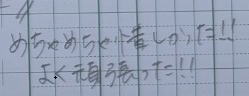 めちゃめちゃ忙しかった!!
よく頑張った!!